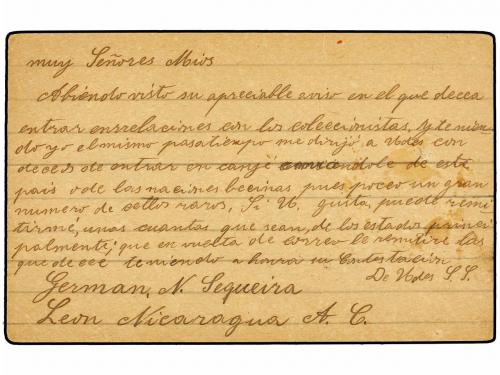 muy Señores Mios
Abiendo visto su apreciable aviso en el que decea
entrar enrrelaciones con los coleccionistas, y tenien
do yo el mismo pasatiempo me dirijó, a Vdes con
deceos de entrar en canje de este
pais o de las naciones becinas pues poceo un gran
numero de cellos raros, Si U. gusta, puede remi
tirme, unas cuantas que sean, de los estados princi
palmente, que en vuelta de correo le remitire las
que deceé teniendo a honra su Contestación
De Vdes S. S.
German, N. Sequeira
Leon Nicaragua A. C.